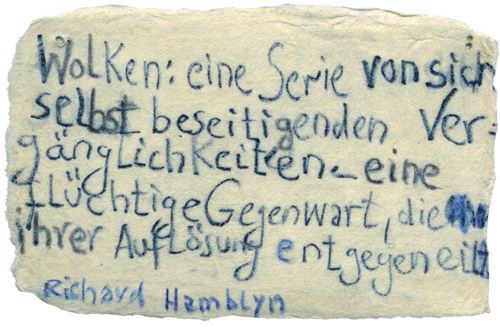 Wolken: eine Serie von sich
selbst beseitigenden Ver-
gänglichkeiten – eine
flüchtige Gegenwart, die
ihrer Auflösung entgegeneilt
Richard Hamblyn